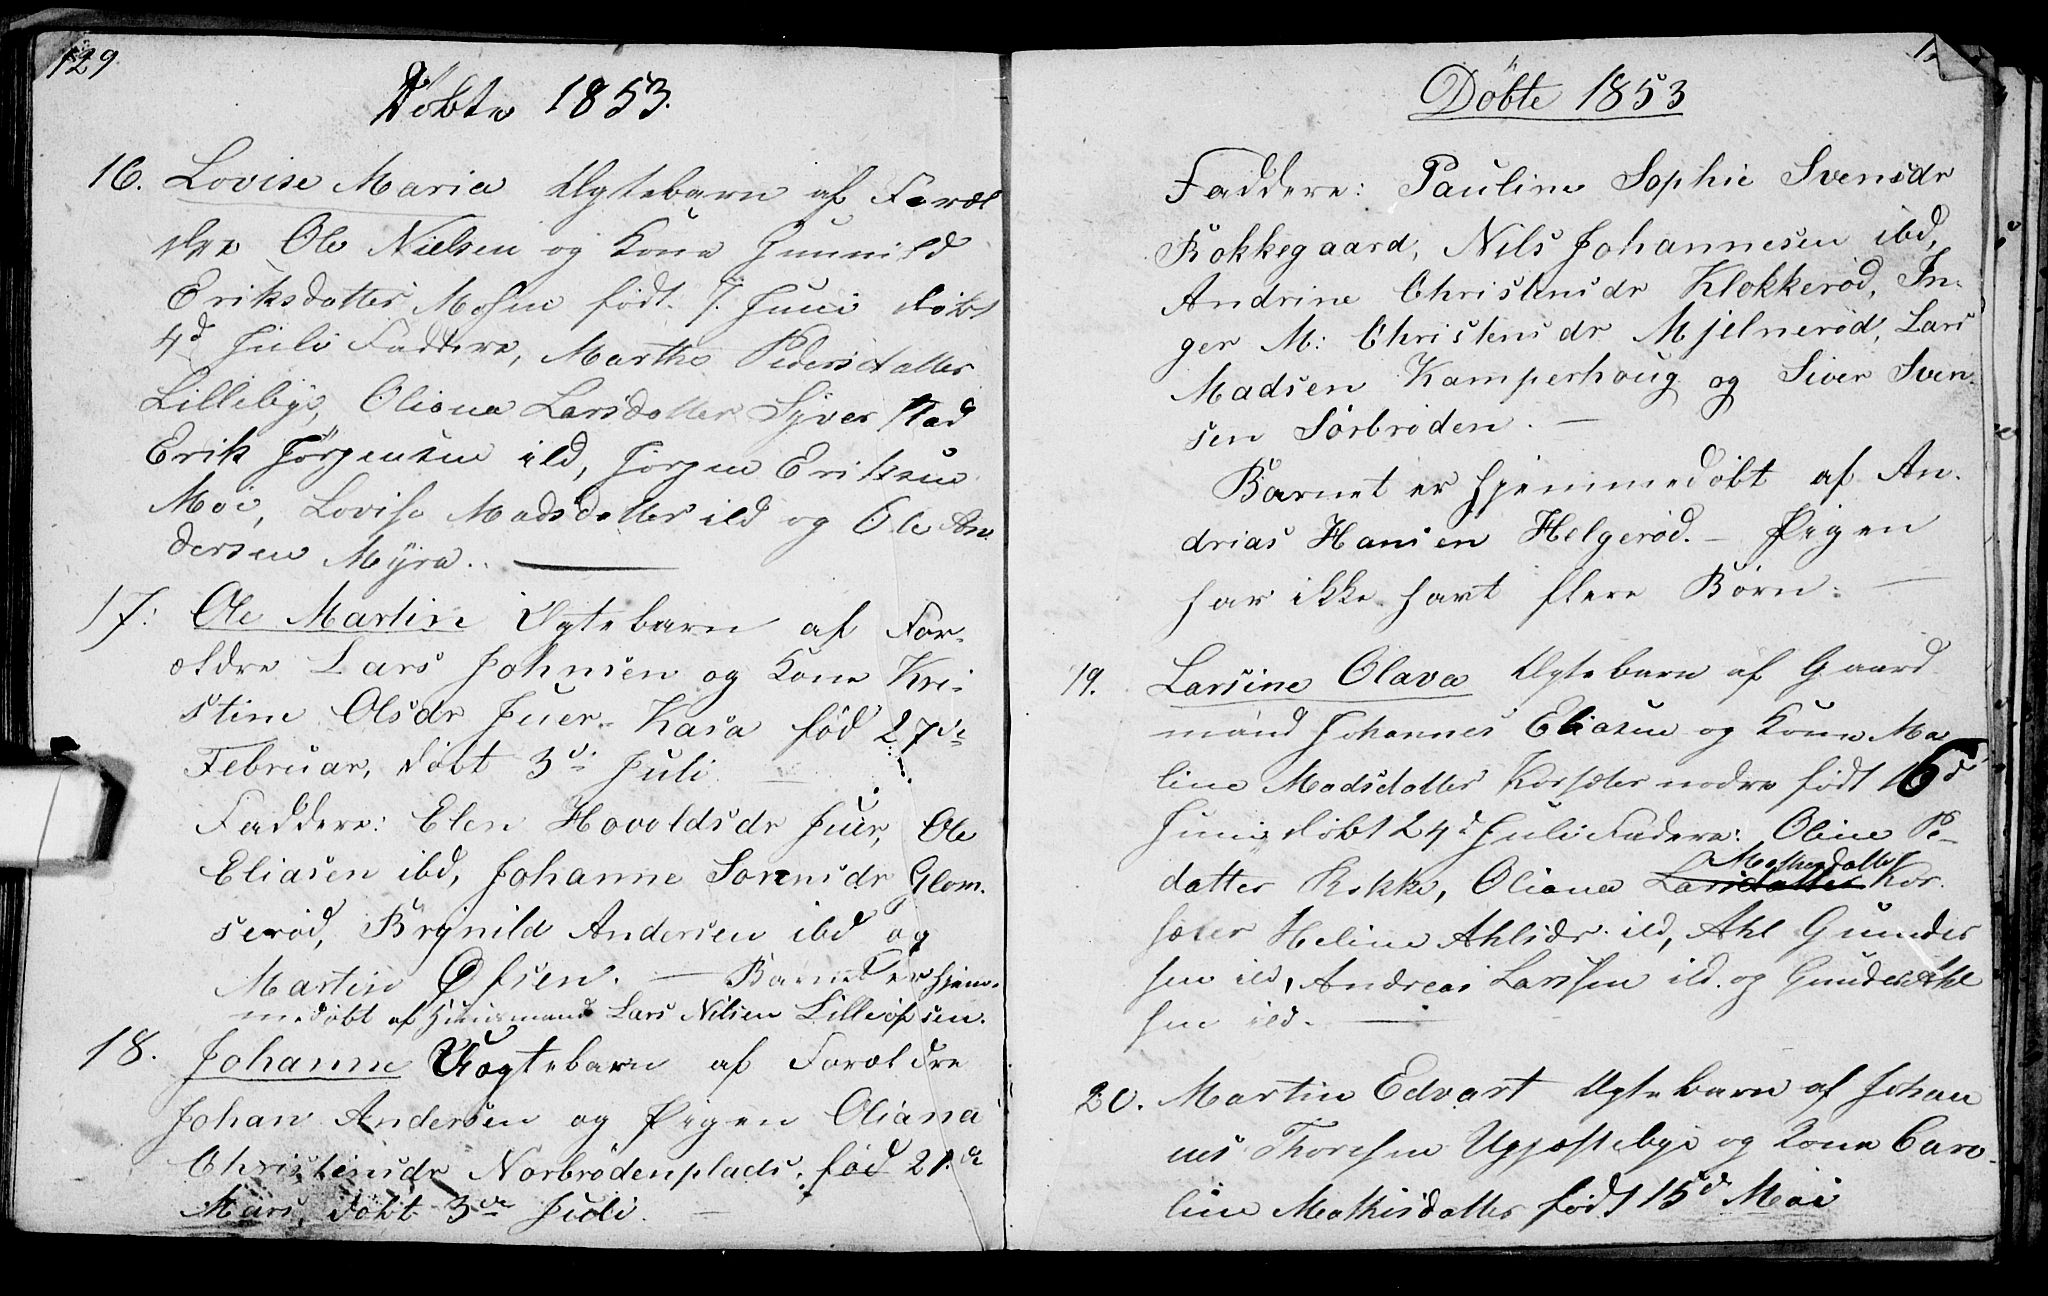 129
Döbte 1853.
16. Lovise Maria Ægtebarn af Foræl
dre Ole Nielsen og Kone Gunnild
Eriksdatter Mosen födt 7. Juni döbt
4d Juli Faddere, Marthe Pedersdatter
Lillebye, Oliana Larsdatter Syverstad
Erik Jörgensen ibd, Jörgen Eriksen
Moe, Lovise Madsdatter ibd og Ole An
dersen Myra.
17. Ole Martin Ægtebarn af For-
ældre Lars Johnsen og Kone Kri-
stine Olsdr Juer- Kasa föd 27de
Februar, döbt 3di Juli.
Faddere: Elen Hovoldsdr Juer, Ole
Eliasen ibd, Johanne Sörensdr Glom-
seröd, Brynild Andersen ibd og
Martin Öfsen. — Barnet er hjem-
medöbt af Huusmand Lars Nilsen Lilleöfsen.
18. Johanne Uægtebarn af Forældre
Johan Andersen og Pigen Oliana
Christensdr Norbrödenplads, föd 21de
Mars, döbt 3die Juli. —
Döbte 1853
Faddere: Pauline Sophie Svensdr
Rokkegaard, Nils Johannesen ibd,
Andrine Christensdr Klokkeröd, In-
ger M: Christensdr Mjelneröd, Lars
Madsen Kamperhoug og Siver Sven-
sen Sörbröden. —
Barnet er hjemmedöbt af An-
drias Hansen Helgeröd. — Pigen
har ikke havt flere Börn. —
19. Larsine Olava Ægtebarn af Gaard
mand Johannes Eliasen og Kone Ma
line Madsdatter Korsæter nodre födt 16d
Juni döbt 24d Juli Fadere: Oline Pe-
datter Rokke, Oliana Larsdatter Mathisdatter Kor-
sæter Heline Ahlsdr ibd, Ahl Gunder
sen ibd, Andreas Larssen ibd. og Gunder Ahl
sen ibd. —
20. Martin Edvart Ægtebarn af Johan
nes Thoresen Ugjestebye og Kone Caro-
line Mathisdatter födt 15d Mai